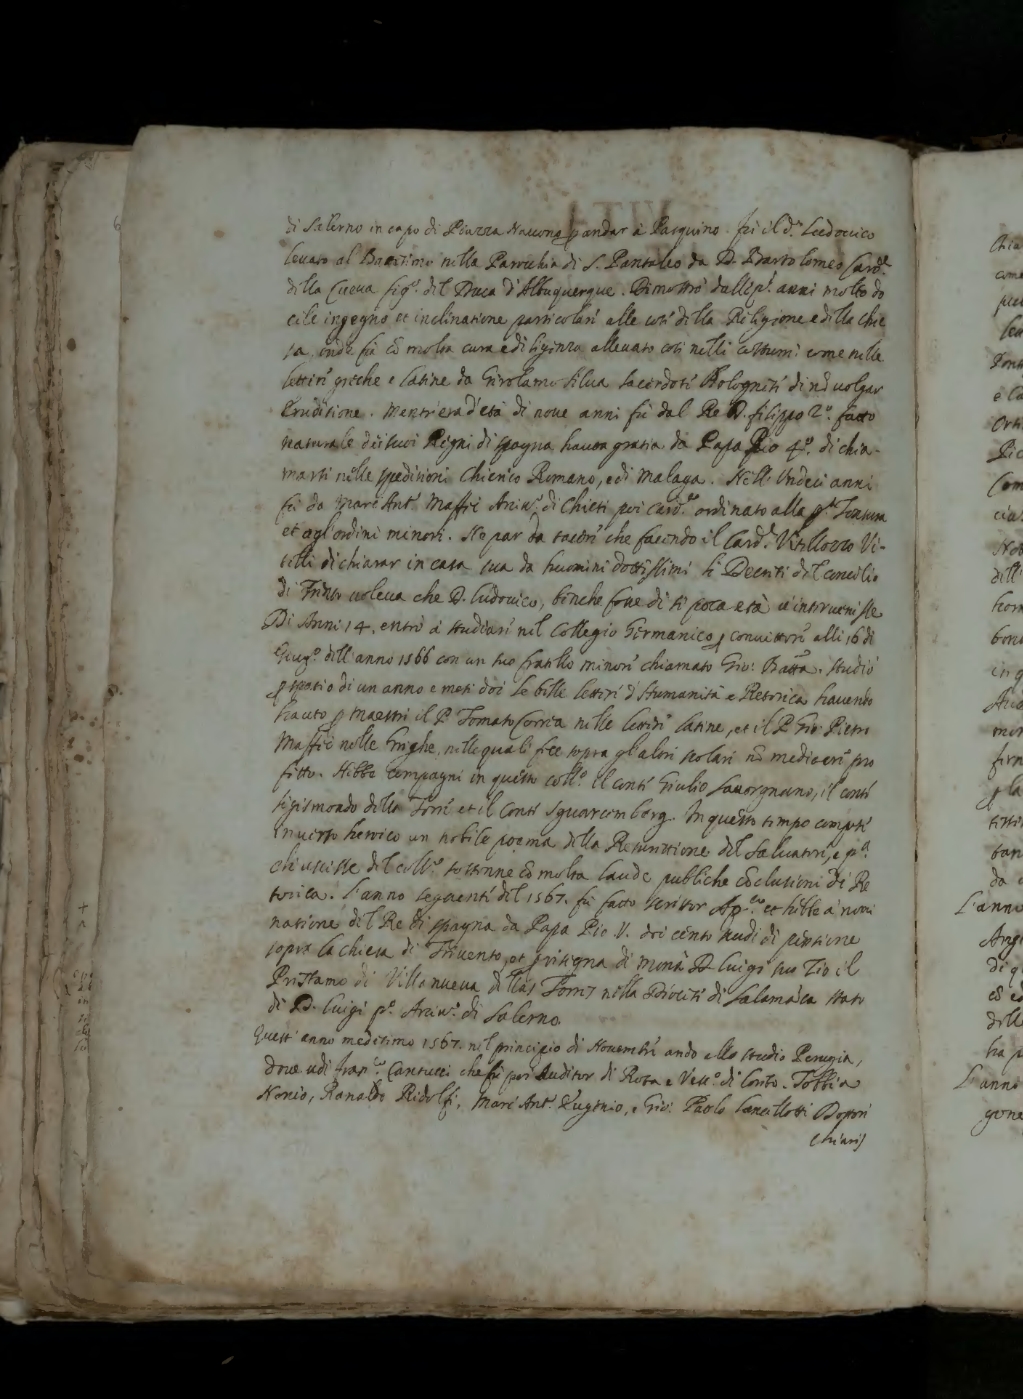 di Salerno in capo di Piazza Nauona p andar a Pasquino. fù il d.º Ludouico
leuato al Battesimo nella Parochia di S. Pantaleo da D. Bartolomeo Card.
della Cueua fig.º del Duca d'Albuquerque. Dimostrò dalli p.i anni molto do
cile ingegno et inclinatione particolari alle cose della Religione e della Chie
sa, onde fù cõ molta cura e diligenza alleuato così nelli costumi come nelle
lettere greche e latine da Girolamo Silua sacerdote Bolognese di nõ uolgar
eruditione. Mentr'era d'età di noue anni fù dal Re D. filippo 2.º fatto
naturale de suoi Regni di spagna hauta gratia da Papa Pio 4.º di chia-
marsi nelle speditioni Chierico Romano, e di Malaga. Nell' Undeci anni
fù da Marc'Ant.º Maffei Arciu.º di Chieti poi Card.le ordinato alla p.ª Tonsura
et agl'ordini minori. No par da tacere che facendo il Card.l Vitellozzo Vi-
telli dichiarar in casa sua da huomini dottissimi li Decreti del Concilio
di Trento uoleua che D. Ludouico, benche fosse di sì poca età u'interuenisse
Di Anni 14. entrò à studiare nel Collegio Germanico p conuittore alli 16 di
Giug.º dell'anno 1566 con un suo fratello minore chiamato Gio: Batta. studiò
p spatio di un anno e mesi doi le belle lettere d'Humanità e Retorica hauendo
hauto p maestri il P. Tomaso Correa nelle lettere latine, et il P. Gio: Pietro
Maffei nelle Greghe, nelle quali fece sopra gl'altri scolari nõ mediocre pro
fitto. Hebbe compagni in questo coll.º il Conte Giulio Sauorgnano, il Conte
Sigismondo della Torre et il Conte Squarcemberg. In questo tempo compose
in uerso heroico un nobile poema della Resurrettione del Saluatore, e p.ª
che uscisse del coll.º sostenne cõ molta laude publiche cõclusioni di Re
torica. L'anno seguente del 1567. fù fatto scrittor Ap.co et hebbe à nomi
natione del Re di spagna da Papa Pio V. doi cento scudi di pensione
sopra la chiesa di Triuento, et p risegna di Mons.r D. Luigi suo Zio il
Prestamo di Villanueua de las Torres nella Diocesi di Salamãca stato
di D. Luigi p.º Arciu.º di Salerno.
Quest'anno medesimo 1567. nel principio di Nouembre andò allo studio Perugia,
doue udì fran.co Cantucci che fù poi Auditor di Rota e Vesc.º di Loreto. Tobbia
Nonio, Ranaldo Ridolfi, Marc'Ant.º Eugenio, e Gio: Paolo Lancellotti Dottori
chiari